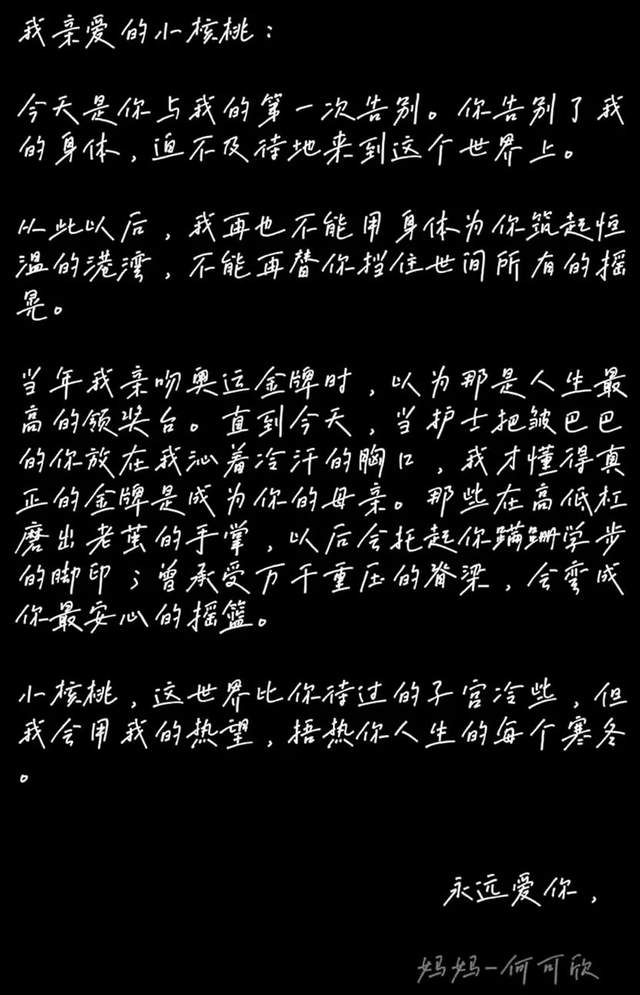 我亲爱的小核桃：
今天是你与我的第一次告别。你告别了我
的身体，迫不及待地来到这个世界上。
从此以后，我再也不能用身体为你筑起恒
温的港湾，不能再替你挡住世间所有的摇
晃。
当年我亲吻奥运金牌时，以为那是人生最
高的领奖台。直到今天，当护士把皱巴巴
的你放在我沁着冷汗的胸口，我才懂得真
正的金牌是成为你的母亲。那些在高低杠
磨出老茧的手掌，以后会托起你蹒跚学步
的脚印；曾承受万千重压的脊梁，会弯成
你最安心的摇篮。
小核桃，这世界比你待过的子宫冷些，但
我会用我的热望，捂热你人生的每个寒冬
。
永远爱你，
妈妈-何可欣